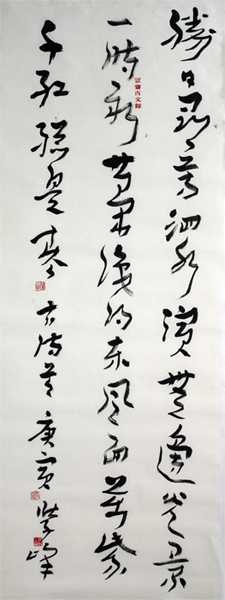 勝日尋芳泗水濱無邊光景
一時新等閒識得東風面萬紫
千紅總是春 古詩 庚寅 峰